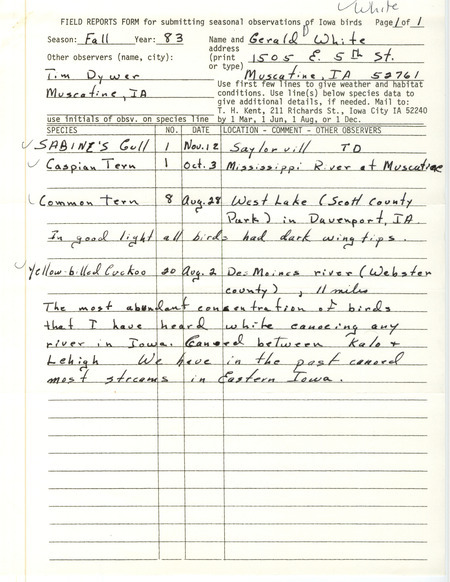 White
FIELD REPORTS FORM for submitting seasonal observations of Iowa birds Page 1 of 1
Season: Fall Year: 83 Name and Gerald White
address
Other observers (name, city): (print 1505 E. 5th St.
or type)
Tim Dywer Muscatine, IA 52761
Muscatine, IA Use first few lines to give weather and habitat
conditions. Use line(s) below species data to
give additional details, if needed. Mail to:
T. H. Kent, 211 Richards St., Iowa City IA 52240
use initials of obsv. on species line by 1 Mar, 1 Jun, 1 Aug, or 1 Dec.
SPECIES NO. DATE LOCATION - COMMENT - OTHER OBSERVERS
SABINE'S Gull 1 Nov.12 Saylorvill TD
Caspian Tern 1 Oct.3 Mississippi River at Muscatine
Common Tern 8 Aug.28 West Lake (Scott County
Park) in Davenport, IA
In good light all birds had dark wing tips.
Yellow-billed Cuckoo 20 Aug.2 Des Moines river (Webster
county), 11 miles
The most abundant concentration of birds
that I have heard white canoeing any
river in Iowa. Canoed between Kalo +
Lehigh We have in the past canoed
most streams in Eastern Iowa.